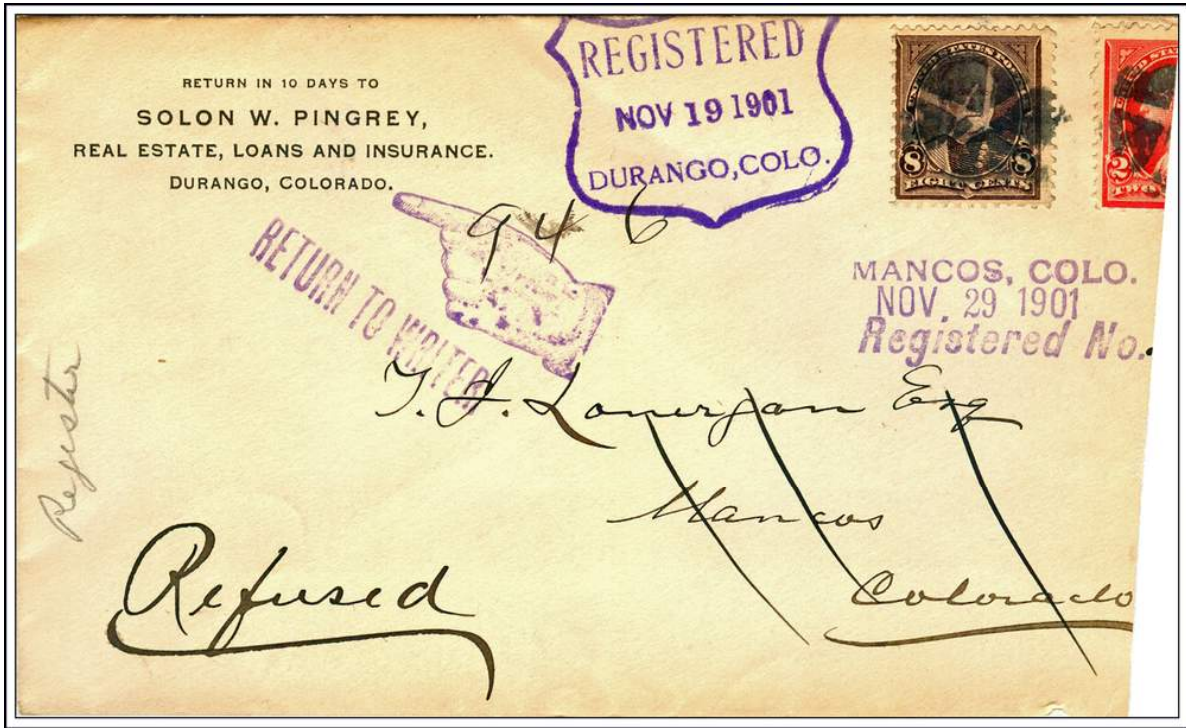 RETURN IN 10 DAYS TO
SOLON W. PINGREY,
REAL ESTATE, LOANS AND INSURANCE.
DURANGO, COLORADO.
REGISTERED
NOV 19 1901
DURANGO, COLO.
8 8
EIGHT CENTS
2
946
RETURN TO WRITER
MANCOS, COLO.
NOV. 29 1901
Registered No.
T. J. Lonergan Esq
Mancos
Colorado
Register
Refused